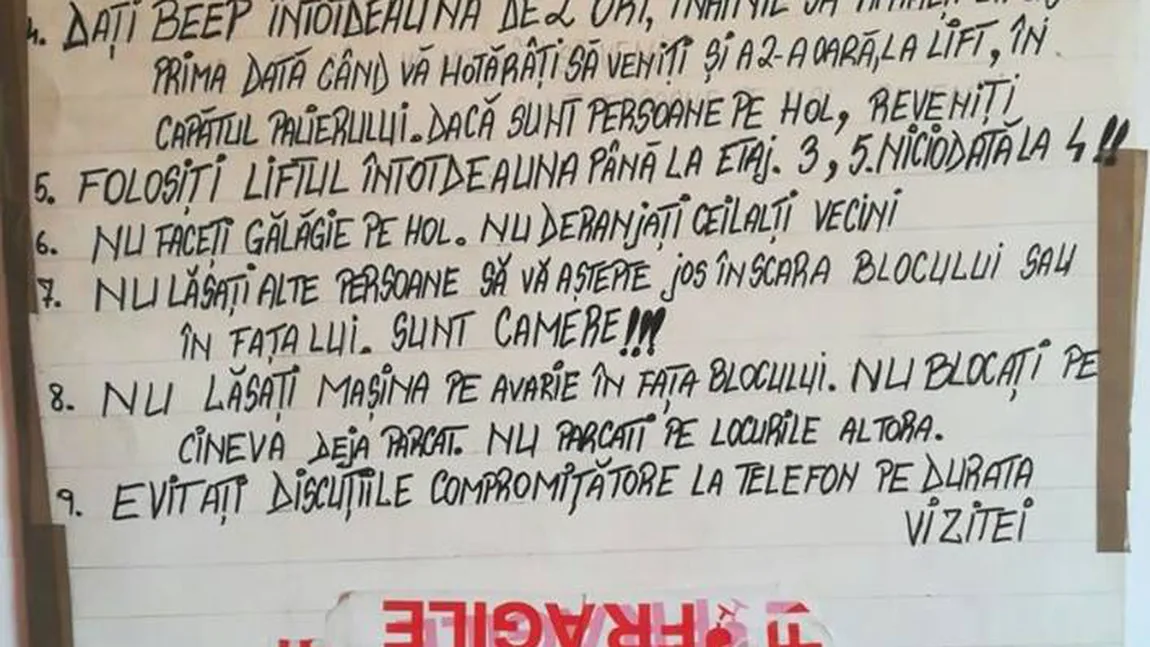 4. DAȚI BEEP ÎNTOTDEAUNA DE 2 ORI, ÎNAINTE SĂ
PRIMA DATĂ CÂND VĂ HOTĂRÂȚI SĂ VENIȚI ȘI A 2-A OARĂ, LA LIFT, ÎN
CAPĂTUL PALIERULUI. DACĂ SUNT PERSOANE PE HOL, REVENIȚI
5. FOLOSIȚI LIFTUL ÎNTOTDEAUNA PÂNĂ LA ETAJ. 3, 5. NICIODATĂ LA 4!!
6. NU FACEȚI GĂLĂGIE PE HOL. NU DERANJAȚI CEILALȚI VECINI
7. NU LĂSAȚI ALTE PERSOANE SĂ VĂ AȘTEPTE JOS ÎN SCARA BLOCULUI SAU
ÎN FAȚA LUI. SUNT CAMERE!!!
8. NU LĂSAȚI MAȘINA PE AVARIE ÎN FAȚA BLOCULUI. NU BLOCAȚI PE
CINEVA DEJA PARCAT. NU PARCATI PE LOCURILE ALTORA.
9. EVITAȚI DISCUȚIILE COMPROMIȚĂTORE LA TELEFON PE DURATA
VIZITEI
FRAGILE